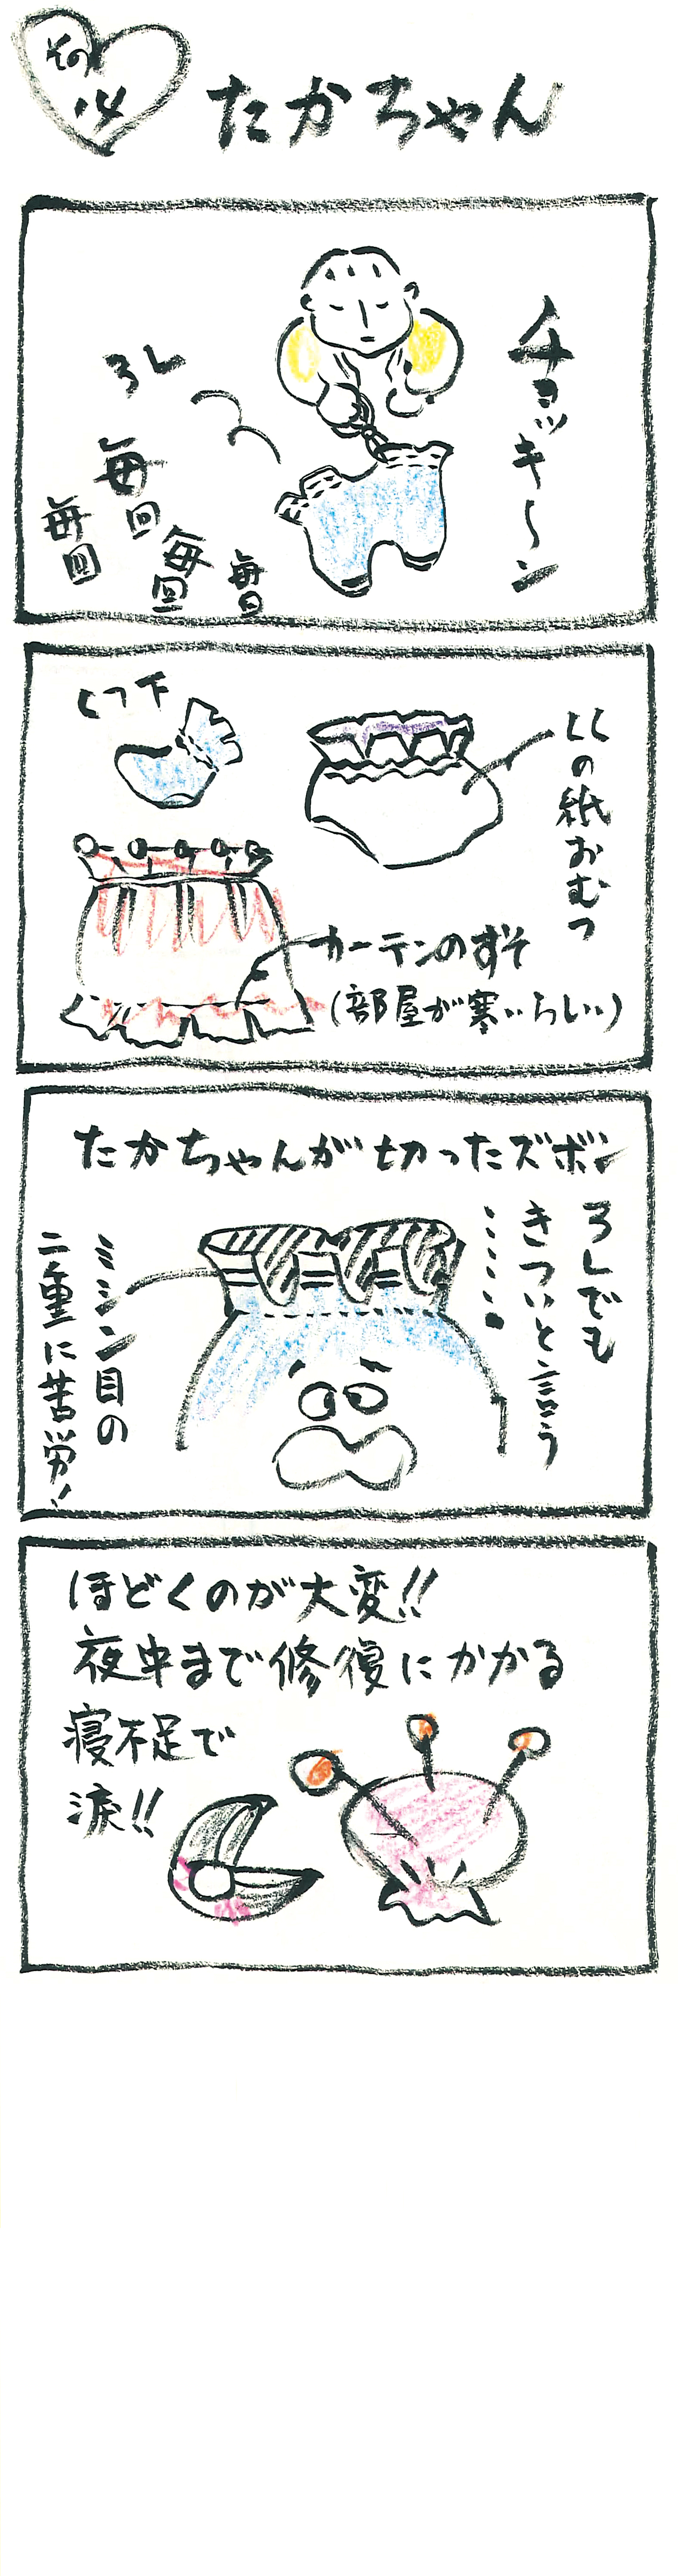 その
14
たかちゃん
チョッキ〜ン
3L
毎回
毎回
毎回
毎回
LLの紙おむつ
くつ下
カーテンのすそ
(部屋が寒いらしい)
たかちゃんが切ったズボン
3Lでも
きついと言う
…………
ミシン目の
二重に苦労!
ほどくのが大変!!
夜中まで修復にかかる
寝不足で
涙!!